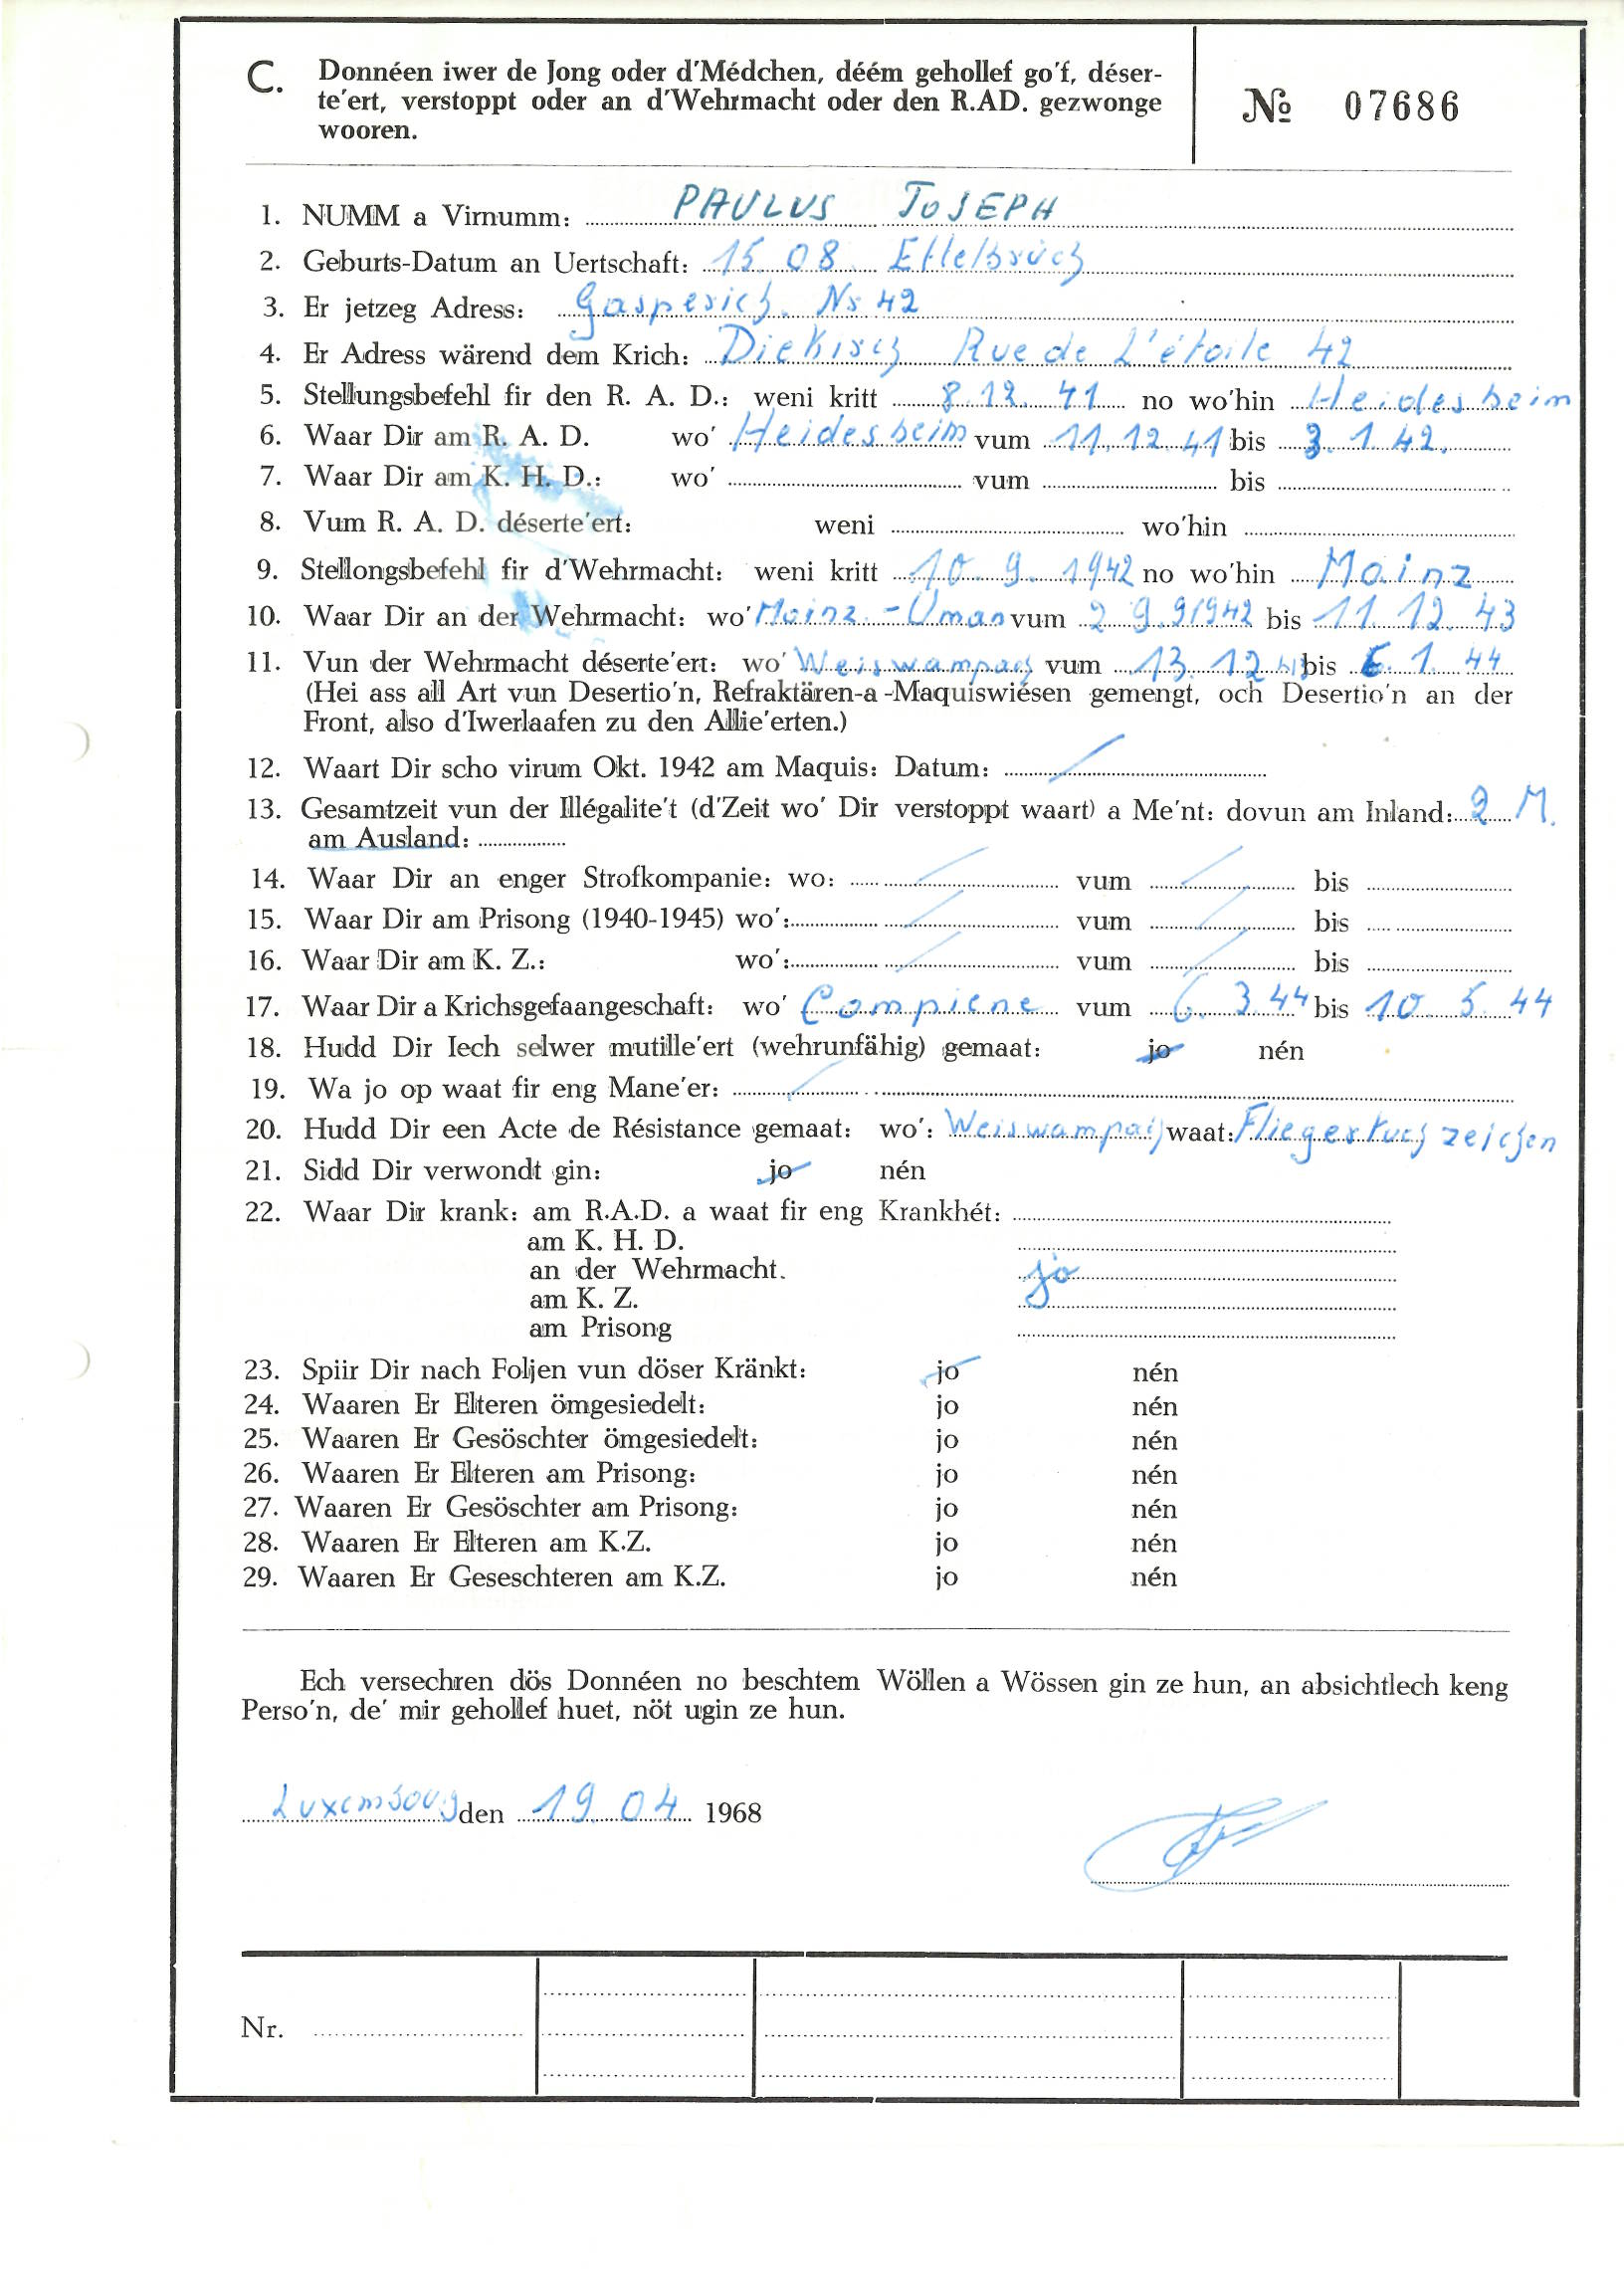 C. Donnéen iwer de Jong oder d'Médchen, déém gehollef go'f, déser-
te'ert, verstoppt oder an d'Wehrmacht oder den R.AD. gezwonge
wooren.
№ 07686
1. NUMM a Virnumm: PAULUS JOSEPH
2. Geburts-Datum an Uertschaft: 15. 08 Ettelbrück
3. Er jetzeg Adress: Gasperich. Nr 42
4. Er Adress wärend dem Krich: Diekirch Rue de L'étoile 42
5. Stellungsbefehl fir den R. A. D.: weni kritt 8.12. 41 no wo'hin Heidesheim
6. Waar Dir am R. A. D. wo' Heidesheim vum 11.12.41 bis 3.1.42.
7. Waar Dir am K. H. D.: wo' vum bis
8. Vum R. A. D. déserte'ert: weni wo'hin
9. Stellongsbefehl fir d'Wehrmacht: weni kritt 10. 9. 1942 no wo'hin Mainz
10. Waar Dir an der Wehrmacht: wo' Mainz - Uman vum 2 9.9/942 bis 11. 12. 43
11. Vun der Wehrmacht déserte'ert: wo' Weiswampach vum 13. 12 bis 6. 1. 44
(Hei ass all Art vun Desertio'n, Refraktären-a-Maquiswiésen gemengt, och Desertio'n an der
Front, also d'Iwerlaafen zu den Allie'erten.)
12. Waart Dir scho virum Okt. 1942 am Maquis: Datum: /
13. Gesamtzeit vun der Illégalite't (d'Zeit wo' Dir verstoppt waart) a Me'nt: dovun am Inland: 2 M.
am Ausland:
14. Waar Dir an enger Strofkompanie: wo: / vum / bis
15. Waar Dir am Prisong (1940-1945) wo': / vum / bis
16. Waar Dir am K. Z.: wo': / vum / bis
17. Waar Dir a Krichsgefaangeschaft: wo' Compiene vum 6. 3.44 bis 10. 5. 44
18. Hudd Dir Iech selwer mutille'ert (wehrunfähig) gemaat: jo nén
19. Wa jo op waat fir eng Mane'er: /
20. Hudd Dir een Acte de Résistance gemaat: wo': Weiswampach waat: Fliegertuch zeichen
21. Sidd Dir verwondt gin: jo nén
22. Waar Dir krank: am R.A.D. a waat fir eng Krankhét:
am K. H. D.
an der Wehrmacht. jo
am K. Z.
am Prisong
23. Spiir Dir nach Foljen vun döser Kränkt: jo nén
24. Waaren Er Elteren ömgesiedelt: jo nén
25. Waaren Er Gesöschter ömgesiedelt: jo nén
26. Waaren Er Elteren am Prisong: jo nén
27. Waaren Er Gesöschter am Prisong: jo nén
28. Waaren Er Elteren am K.Z. jo nén
29. Waaren Er Geseschteren am K.Z. jo nén
Ech versechren dös Donnéen no beschtem Wöllen a Wössen gin ze hun, an absichtlech keng
Perso'n, de' mir gehollef huet, nöt ugin ze hun.
Luxembourg den 19. 04 1968
Nr.